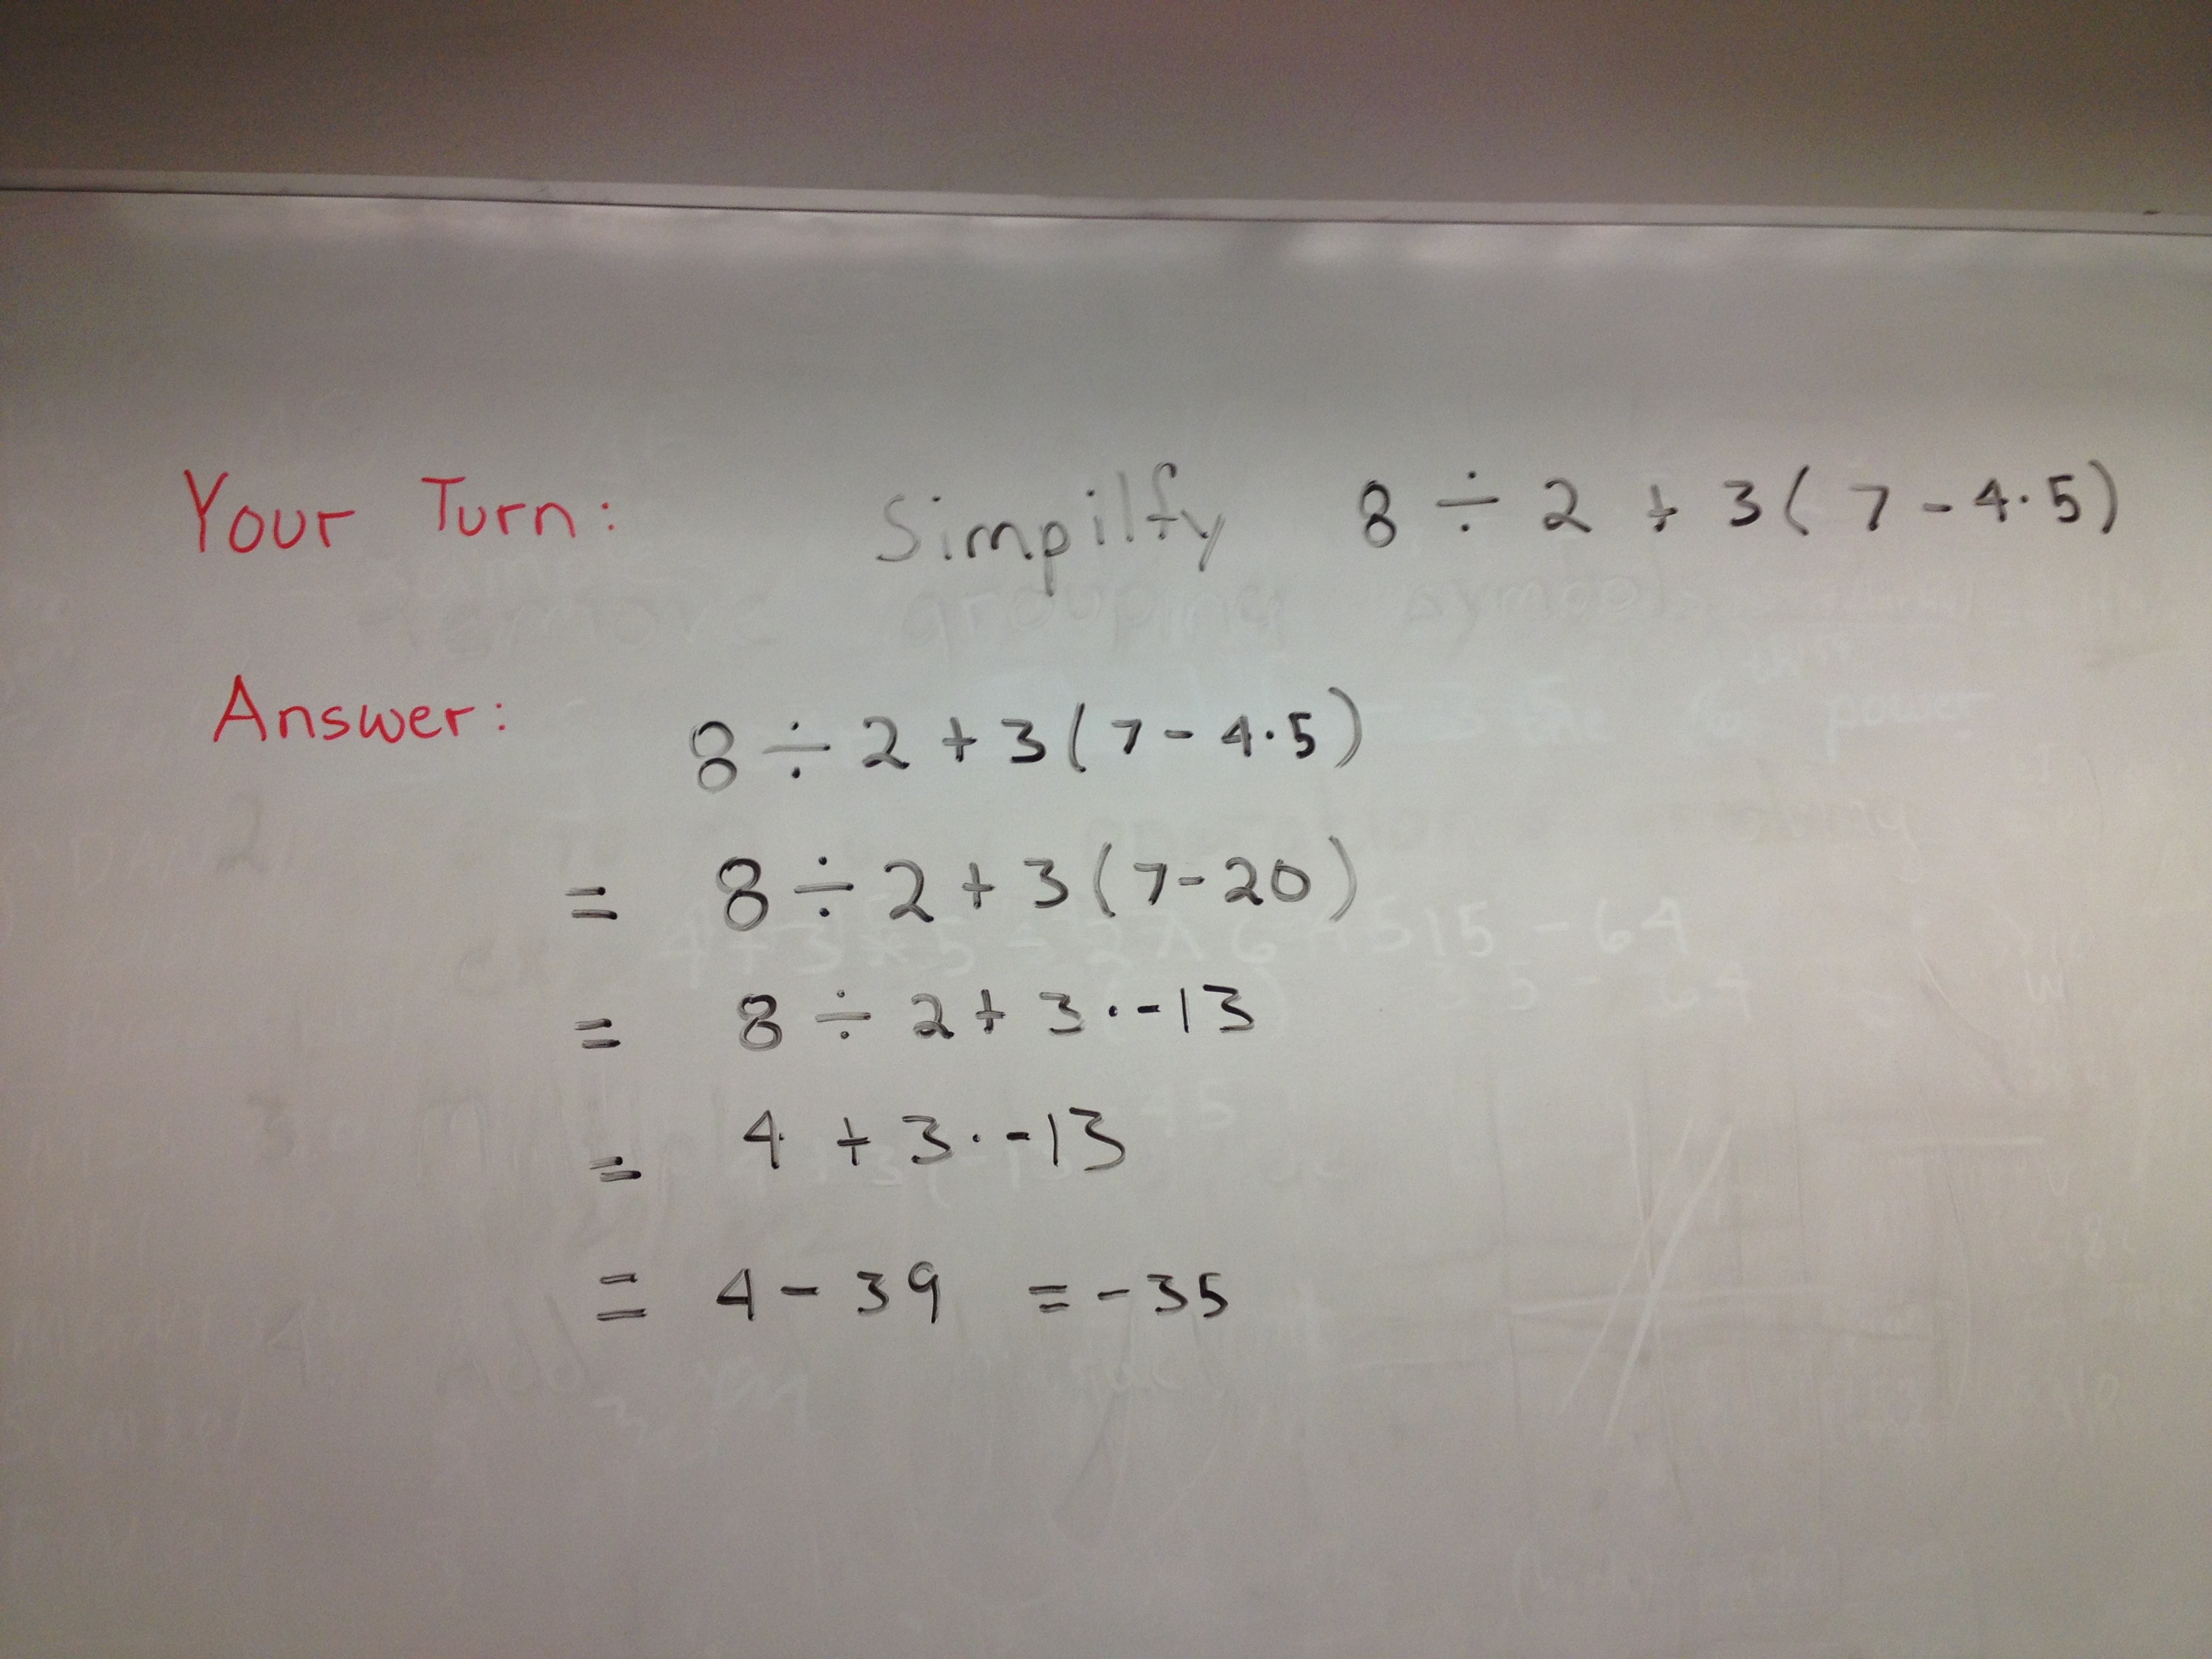 Your Turn: Simpilfy 8 ÷ 2 + 3(7 - 4·5)
Answer: 8 ÷ 2 + 3(7 - 4·5)
= 8 ÷ 2 + 3(7-20)
= 8 ÷ 2 + 3·-13
= 4 + 3·-13
= 4 - 39 = -35